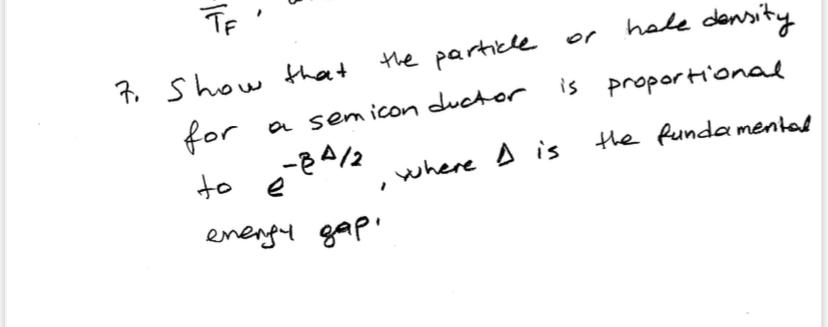 T_F ,
7. Show that the particle or hole density
for a semiconductor is proportional
to e^{-βΔ/2} , where Δ is the fundamental
energy gap.